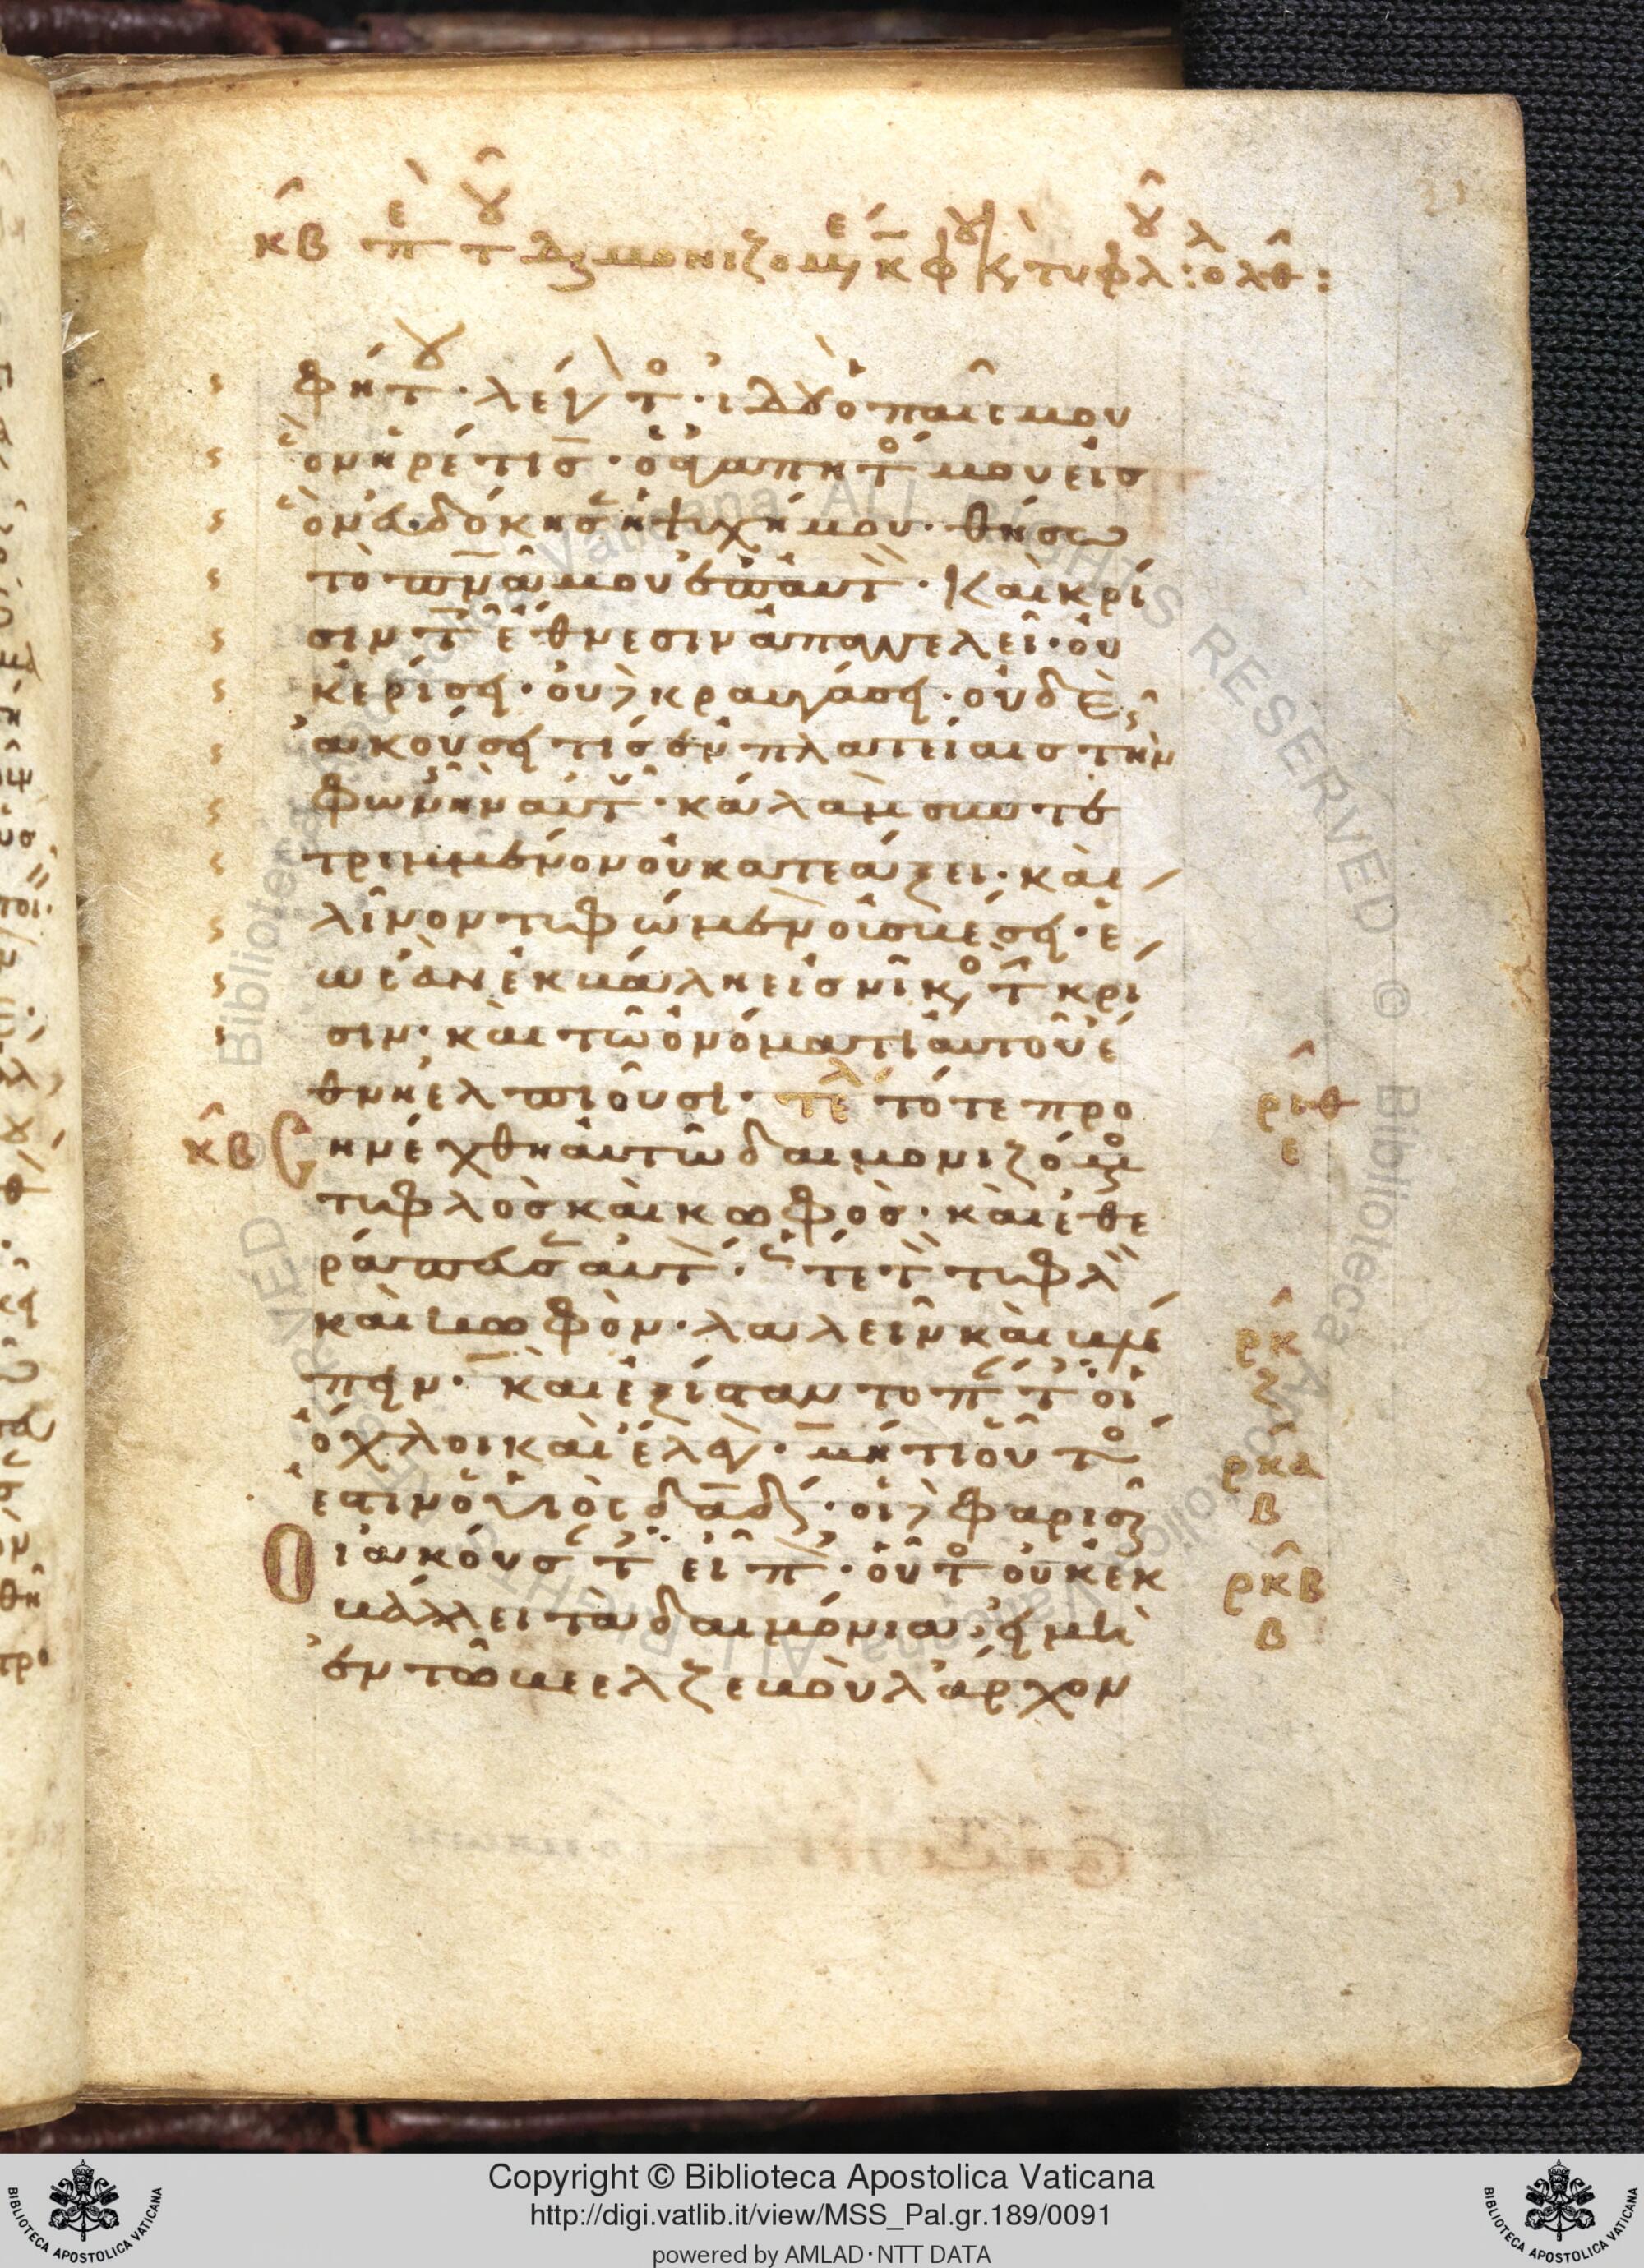 κβ πε του δαιμονιζομέ κ κφου κ τυφλου : ολθ :
φήτου · λέγοντος · ιδοὺ ὁ παῖς μου
ὃν ἡρέτισα · ὁ ἀγαπητός μου εἰς
ὃν εὐδόκησεν ἡ ψυχή μου · θήσω
τὸ πνᾶ μου ἐπ᾽ αὐτὸν · καὶ κρί
σιν τοῖς ἔθνεσιν ἀπαγγελεῖ · οὐ
κ ἐρίσῃ · οὐδὲ κραυγάσῃ · οὐδὲ
ἀκούσῃ τίς ἐν πλατείαις τὴν
φωνὴν αὐτοῦ · κάλαμον συντε
τριμμένον οὐ κατεάξει · καὶ
λίνον τυφώμενον οὐ σβέσῃ · ἕ
ως ἐὰν ἐκβάλῃ εἰς νῖκος τὴν κρί
σιν · καὶ τῶ ὀνόματι αὐτοῦ ἔ
θνη ἐλπιοῦσι · τελ τότε προ
κβ σηνέχθη αὐτῶ δαιμονιζόμενος
τυφλὸς καὶ κωφὸς · καὶ ἐθε
ράπευσεν αὐτὸν · ὥστε τὸν τυφλὸν
καὶ κωφὸν · λαλεῖν καὶ βλέ
πειν · καὶ ἐξίσταντο πάντες οἱ
ὄχλοι καὶ ἔλεγον · μήτι οὗτός
ἐστιν ὁ υἱὸς δαδ · οἱ δὲ φαρισαῖ
οι ἀκούσαντες εἶπον · οὗτος οὐκ ἐκ
βάλλει τὰ δαιμόνια · εἰ μὴ
ἐν τῶ βεελζεβοὺλ ἄρχον
ριθ
ε
ρκ
ζ
ρκα
β
ρκβ
β
Copyright © Biblioteca Apostolica Vaticana
http://digi.vatlib.it/view/MSS_Pal.gr.189/0091
powered by AMLAD·NTT DATA
BIBLIOTECA APOSTOLICA VATICANA
BIBLIOTECA APOSTOLICA VATICANA